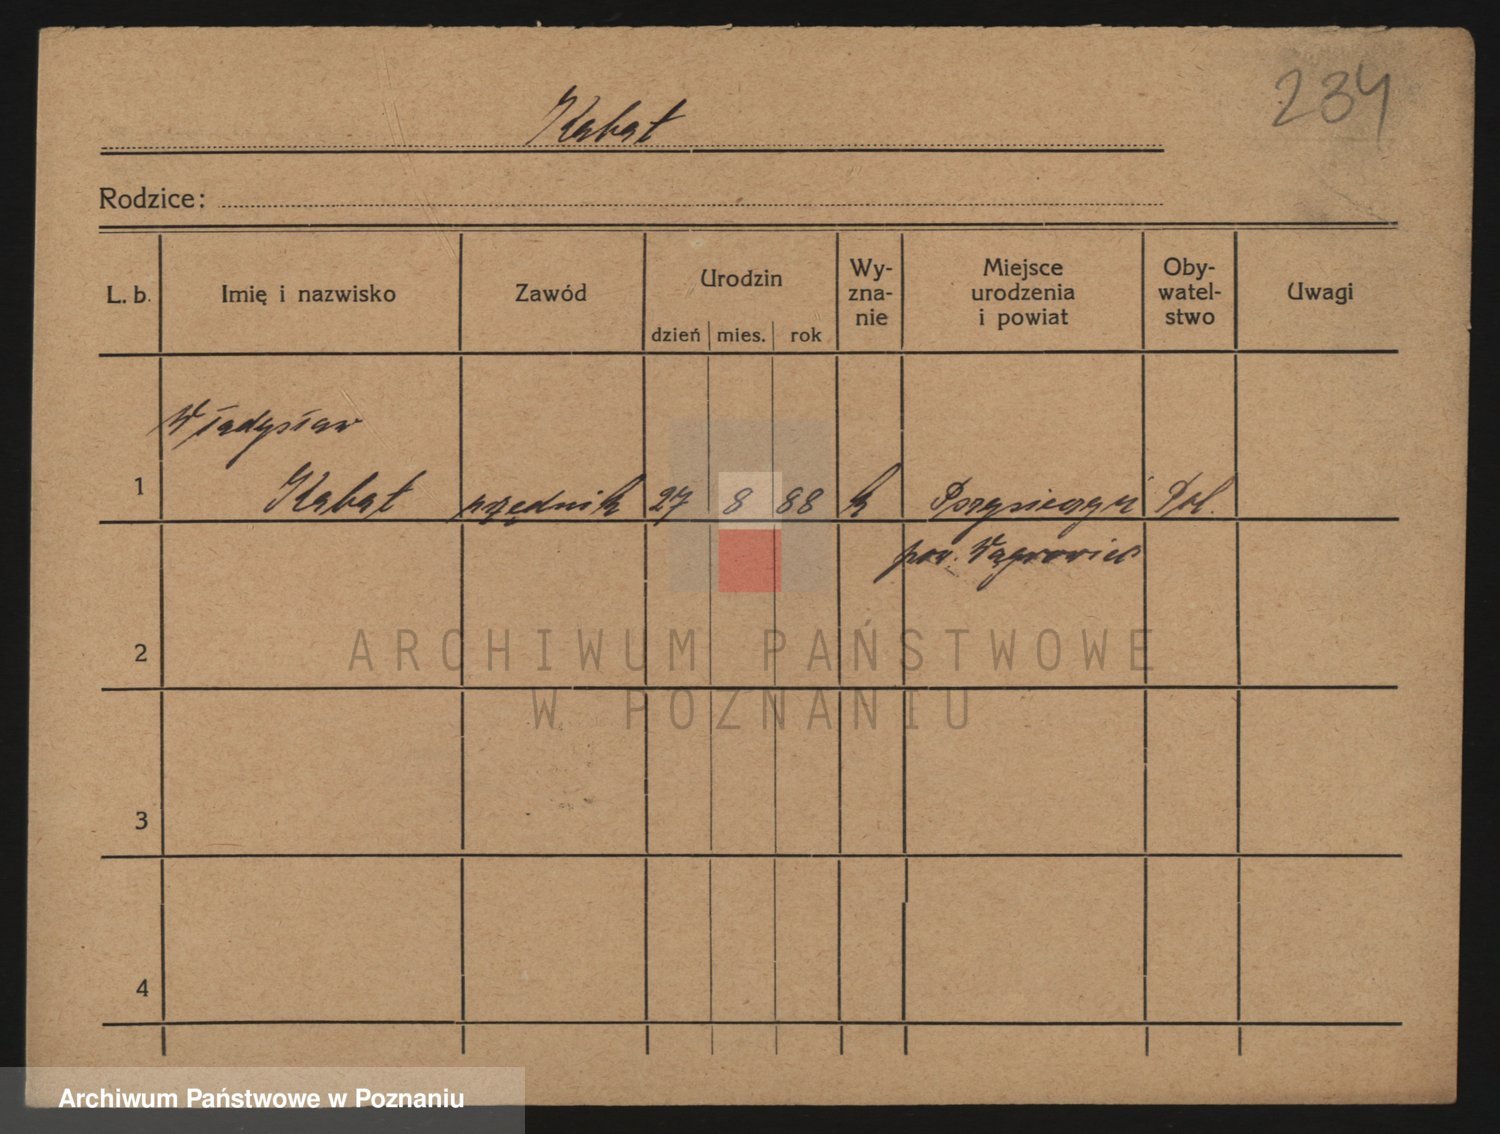 234
Kabat
Rodzice:
L. b.
Imię i nazwisko
Zawód
Urodzin
dzień mies. rok
Wy-
zna-
nie
Miejsce
urodzenia
i powiat
Oby-
watel-
stwo
Uwagi
Władysław
1 Kabat urzędnik 27 8 88 k Pol.
pow. Wągrowiec
2
3
4
ARCHIWUM PAŃSTWOWE
W POZNANIU
Archiwum Państwowe w Poznaniu